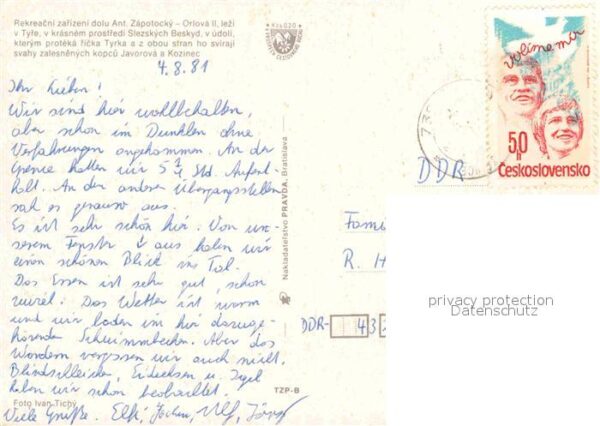 Rekreační zařízení dolu Ant. Zápotocký – Orlová II, leží
v Tyře, v krásném prostředí Slezských Beskyd, v údolí,
kterým protéká říčka Tyrka a z obou stran ho svírají
svahy zalesněných kopců Javorová a Kozinec
4.8.81
Ihr Lieben!
Wir sind hier wohlbehalten,
aber schon im Dunklen ohne
Verfahrungen angekommen. An der
Grenze hatten wir 5 Std. Aufent-
halt. An den anderen Übergangsstellen
sah es genauso aus.
Es ist sehr schön hier. Von un-
serem Fenster aus haben wir
einen schönen Blick ins Tal.
Das Essen ist sehr gut, schon
zuviel. Das Wetter ist warm
und wir baden im hier dazuge-
hörenden Schwimmbecken. Aber das
Wandern vergessen wir auch nicht.
Blindschleiche, Eidechsen u. Igel
haben wir schon beobachtet.
Viele Grüße. Elfi, Jochen, Ulf,
Foto Ivan Tichý
TZP-B
Nakladatelství PRAVDA, Bratislava
Volíme mír
50 h
Československo
DDR
Fami
R. H
DDR- 43
privacy protection
Datenschutz